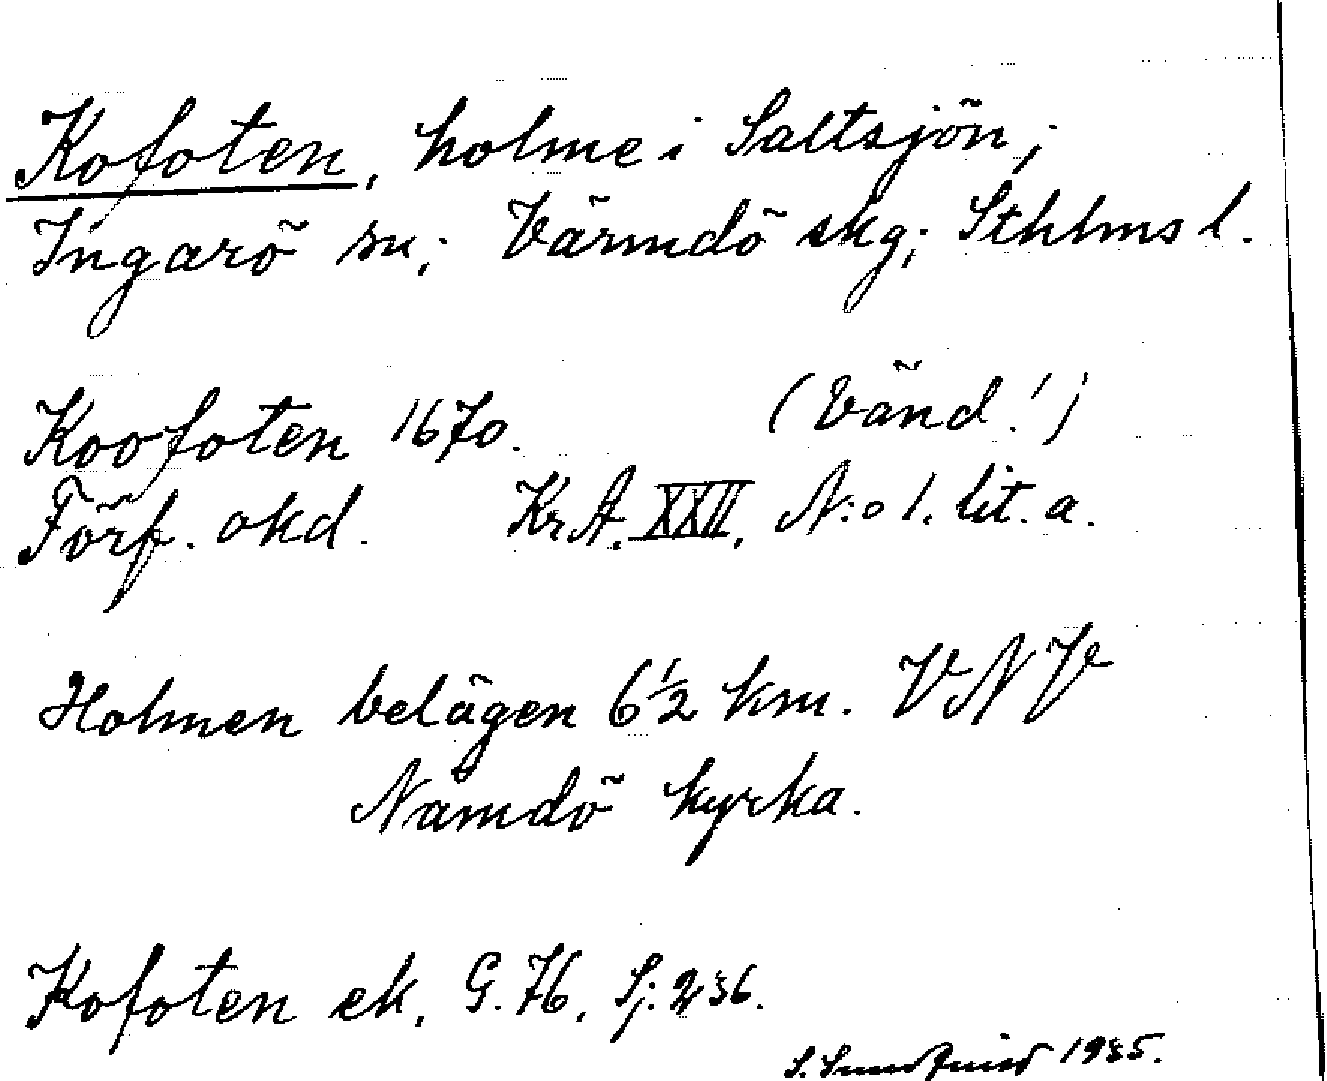 Kofoten, holme i Saltsjön;
Ingarö sn; Värmdö skg; Sthlms l.
Koofoten 1670. (Vänd!)
Förf. okd. Kr.A. XXII, N:o 1. lit. a.
Holmen belägen 6½ km. VNV
Nämdö kyrka.
Kofoten ek. G. 76. Sj: 236.
S. 1935.